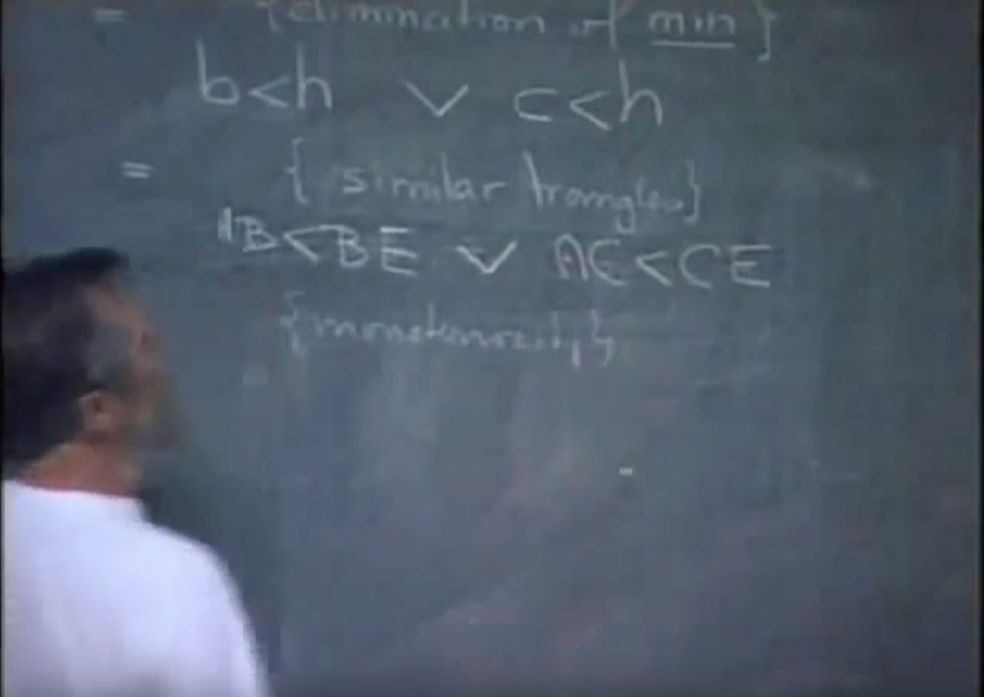 = {elimination of min}
b<h ∨ c<h
= { similar triangles}
AB<BE ∨ AC<CE
{monotonicity}